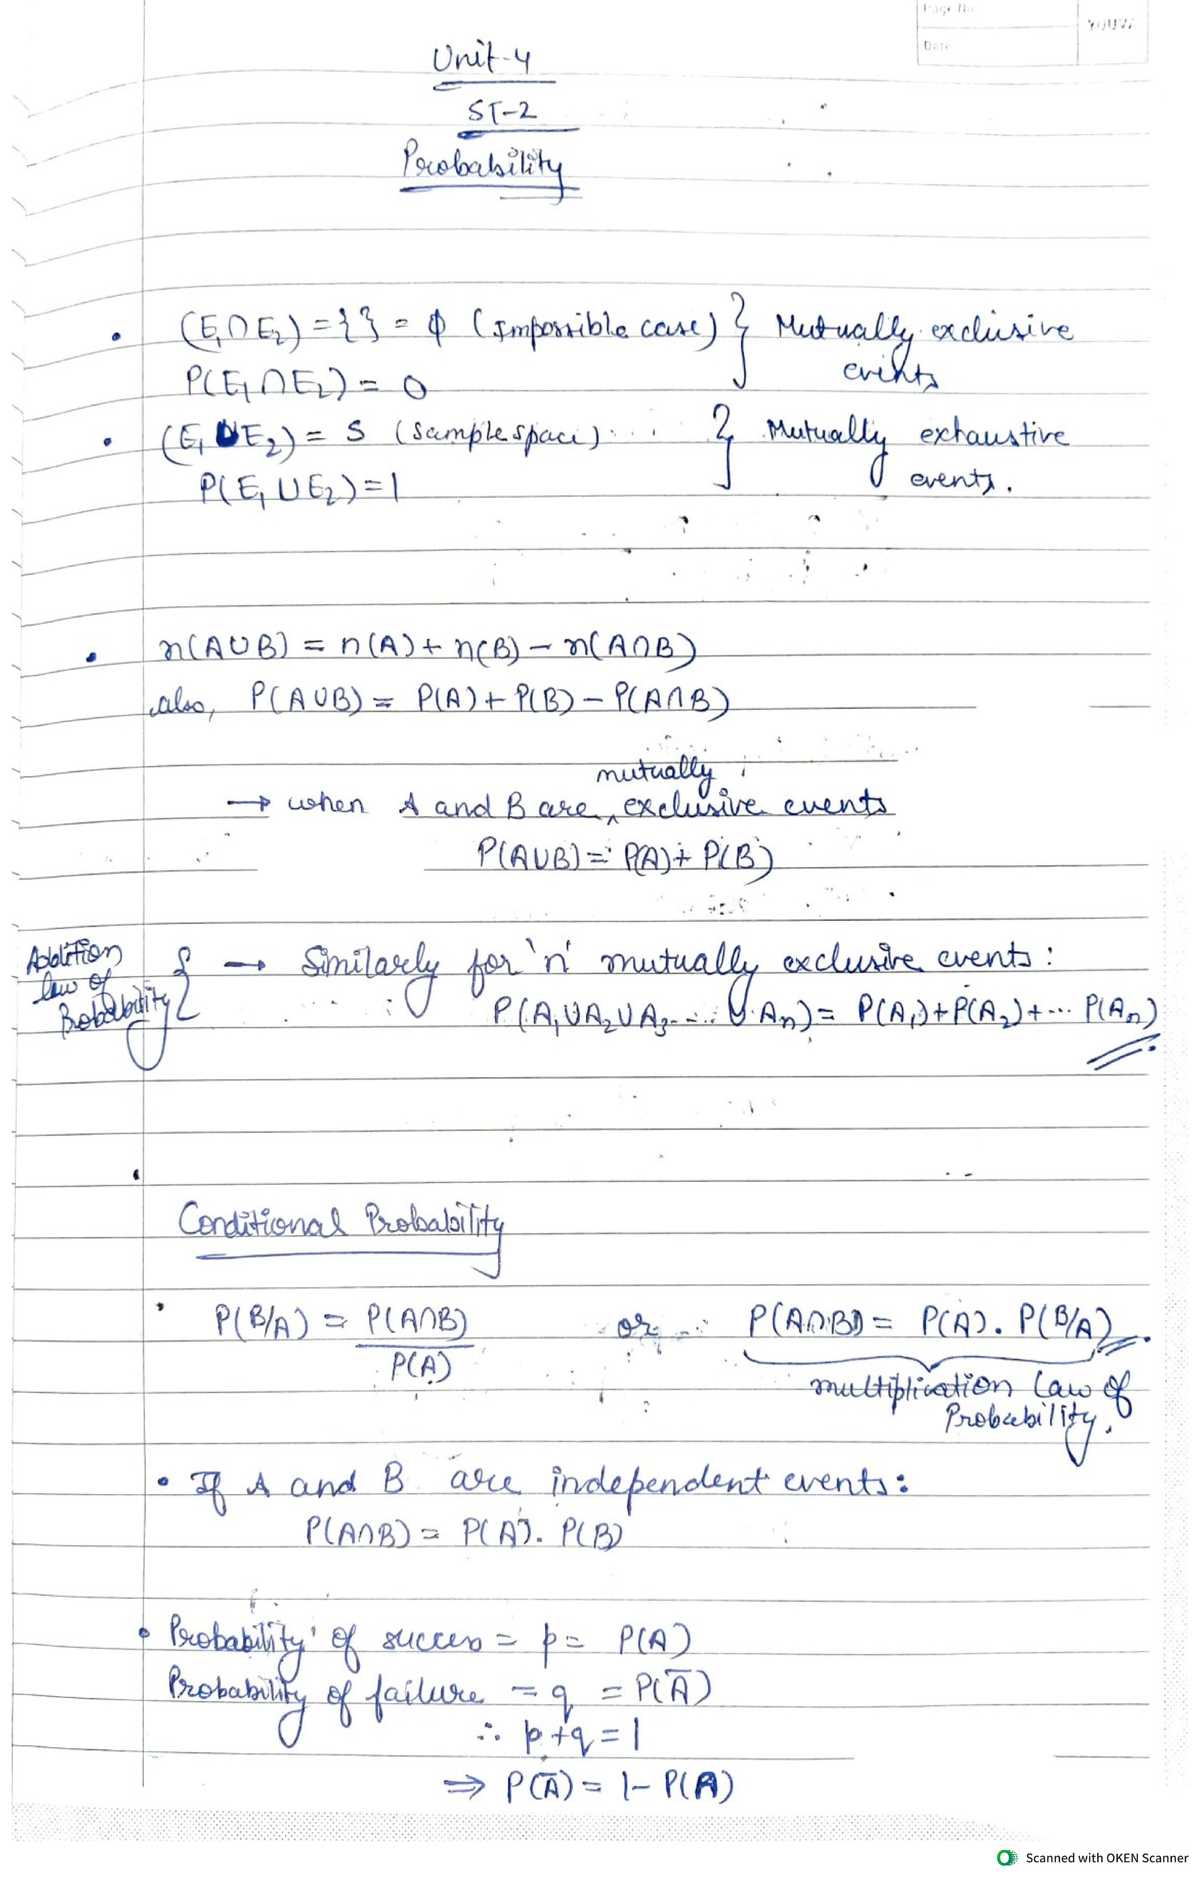 Page No
YOUVA
Date
Unit-4
ST-2
Probability
• (E₁∩E₂) = { } = ϕ (Impossible case) } Mutually exclusive
P(E₁∩E₂) = 0 events
• (E₁UE₂) = S (Sample space) } Mutually exhaustive
P(E₁UE₂) = 1 events.
• n(AUB) = n(A) + n(B) – n(A∩B)
also, P(AUB) = P(A) + P(B) – P(A∩B)
mutually
→ when A and B are ^ exclusive events
P(AUB) = P(A) + P(B)
Addition
law of
Probability
{ → Similarly for 'n' mutually exclusive events:
P(A₁UA₂UA₃---... U An) = P(A₁)+P(A₂)+... P(An)
Conditional Probability
• P(B/A) = P(A∩B) or P(A∩B) = P(A). P(B/A).
P(A)
multiplication law of
Probability.
• If A and B are independent events:
P(A∩B) = P(A). P(B)
• Probability of success = p = P(A)
Probability of failure = q = P(Ā)
∴ p+q = 1
⇒ P(Ā) = 1 – P(A)
Scanned with OKEN Scanner